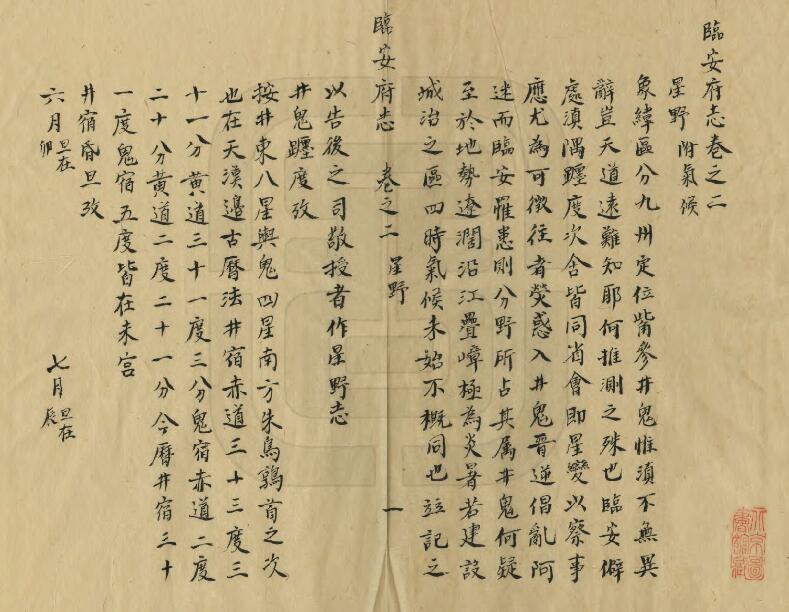 臨安府志卷之二
星野 附氣候
象緯區分九州定位觜參井鬼惟滇不無異
辭豈天道遠難知耶何推測之殊也臨安僻
處滇隅躔度次舍皆同省會即星變以察事
應尤為可徵往者熒惑入井鬼晋逆倡亂阿
迷而臨安罹患則分野所占其屬井鬼何疑
至於地勢遼濶沿江疊嶂極為炎暑若建設
城治之區四時氣候未始不概同也竝記之
臨安府志 卷之二 星野 一
以告後之司敬授者作星野志
井鬼躔度攷
按井東八星輿鬼四星南方朱鳥鶉首之次
也在天漢邊古曆法井宿赤道三十三度三
十一分黄道三十一度三分鬼宿赤道二度
二十分黄道二度二十一分今曆井宿三十
一度鬼宿五度皆在未宮
井宿昏旦攷
六月旦在卯 七月旦在辰